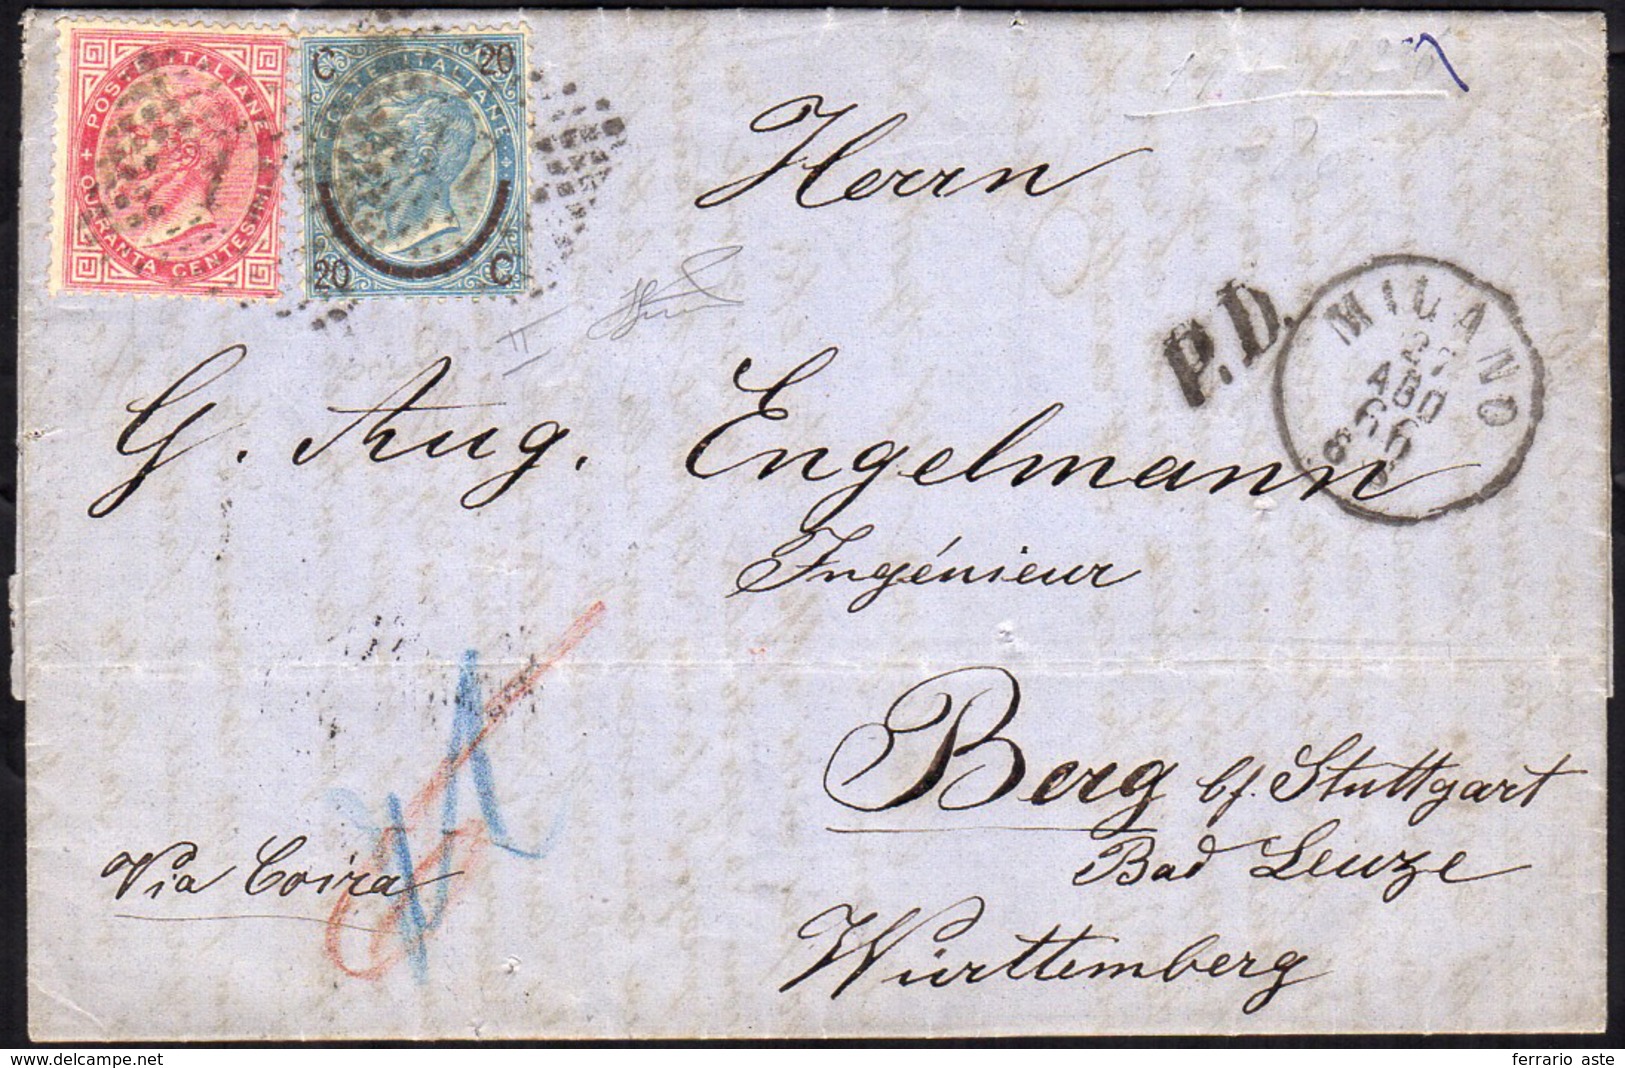 POSTE ITALIANE
QUARANTA CENTESIMI
C 20
POSTE ITALIANE
20 C
II
Herrn
P.D.
MILANO
27
AGO
66
G. Aug. Engelmann
Ingénieur
Berg b/. Stuttgart
Bad Leuze
Via Coira
Württemberg
www.delcampe.net
ferrario aste